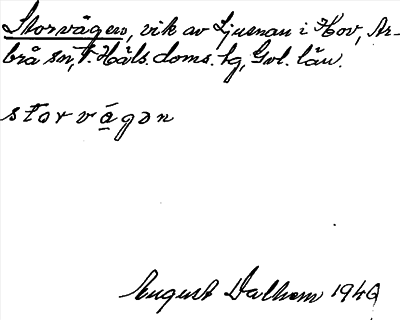 Storvågen, vik av Ljusnan i Hov, Ar-
brå sn, V. Häls. doms. tg, Gvl. län.
storvågɔn
August Dalhem 1940